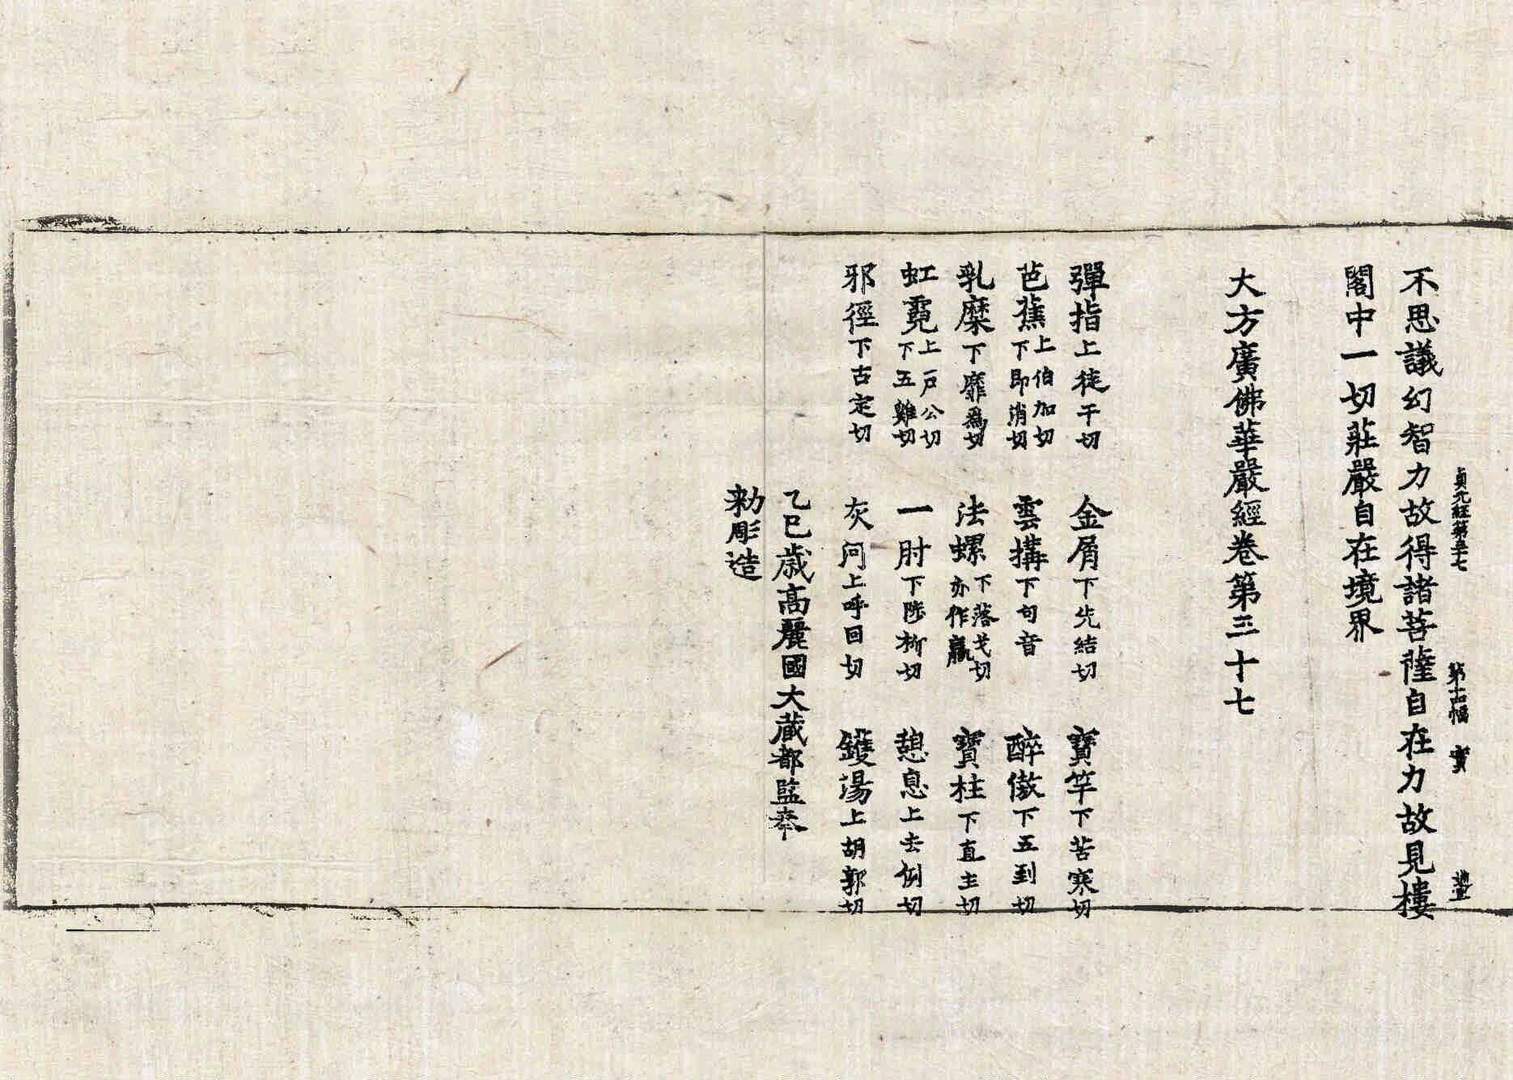 貞元經第三十七 幅 寶
不思議幻智力故得諸菩薩自在力故見樓
閣中一切莊嚴自在境界
大方廣佛華嚴經卷第三十七
彈指上徒干切 金屑下先結切 寶竿下苦寒切
芭蕉上伯加切下即消切 雲搆下句音 醉傲下五到切
乳糜下靡為切 法螺下落戈切亦作蠃 寶柱下直主切
虹霓上戶公切下五雞切 一肘下陟柳切 憩息上去例切
邪徑下古定切 灰河上呼回切 鑊湯上胡郭切
乙巳歲高麗國大藏都監奉
勅彫造